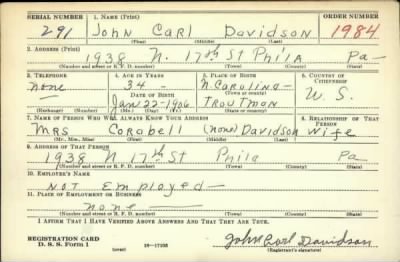 SERIAL NUMBER 1. NAME (Print) ORDER NUMBER
291 John Carl Davidson 1984
(First) (Middle) (Last)
2. ADDRESS (Print)
1938 N. 17th St Phi'la Pa-
(Number and street or R. F. D. number) (Town) (County) (State)
3. TELEPHONE 4. AGE IN YEARS 5. PLACE OF BIRTH 6. COUNTRY OF CITIZENSHIP
none 34 - N. Carolina-
DATE OF BIRTH (Town or county) U.S.
Jan 22-1906 Troutman
(Exchange) (Number) (Mo.) (Day) (Yr.) (State or country)
7. NAME OF PERSON WHO WILL ALWAYS KNOW YOUR ADDRESS 8. RELATIONSHIP OF THAT PERSON
Mrs Corabell (none) Davidson Wife
(Mr., Mrs., Miss) (First) (Middle) (Last)
9. ADDRESS OF THAT PERSON
1938 N 17th St Phila Pa
(Number and street or R. F. D. number) (Town) (County) (State)
10. EMPLOYER'S NAME
Not Employed-
11. PLACE OF EMPLOYMENT OR BUSINESS
none
(Number and street or R. F. D. number) (Town) (County) (State)
I AFFIRM THAT I HAVE VERIFIED ABOVE ANSWERS AND THAT THEY ARE TRUE.
REGISTRATION CARD
D. S. S. Form 1 (over) 16-17105
John Carl Davidson
(Registrant's signature)